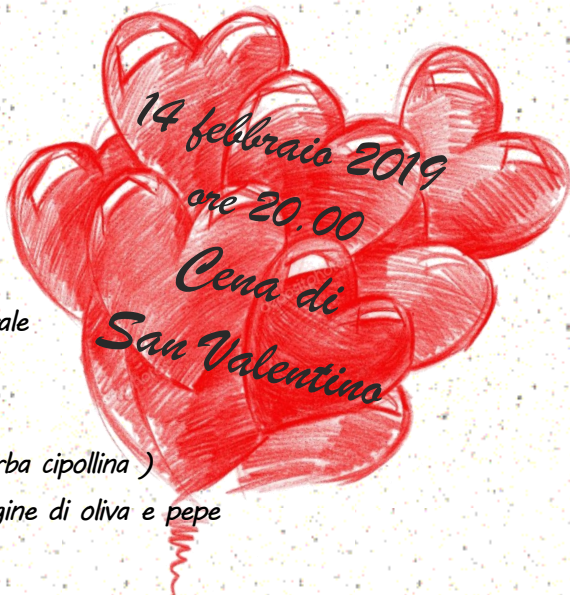 14 febbraio 2019
ore 20.00
Cena di
San Valentino
ale
rba cipollina )
gine di oliva e pepe